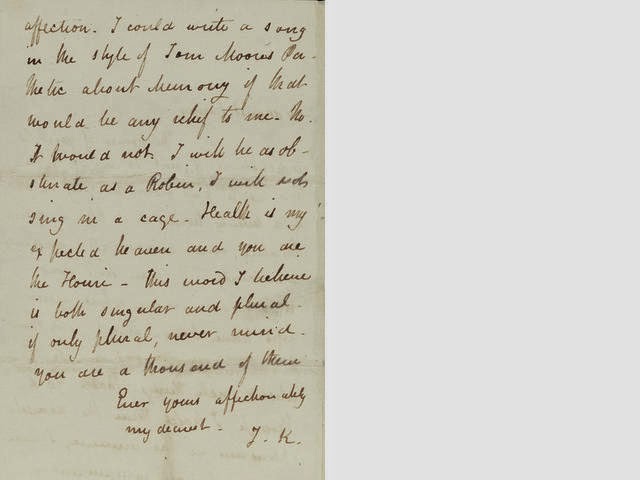 affection. I could write a song
in the style of Tom Moore's Pa-
thetic about Memory if that
would be any relief to me. No.
It would not. I will be as ob-
stinate as a Robin, I will not
sing in a cage - Health is my
expected heaven and you are
the Houri - this word I believe
is both singular and plural -
if only plural, never mind -
you are a thousand of them
Ever yours affectionately
my dearest -
J. K.